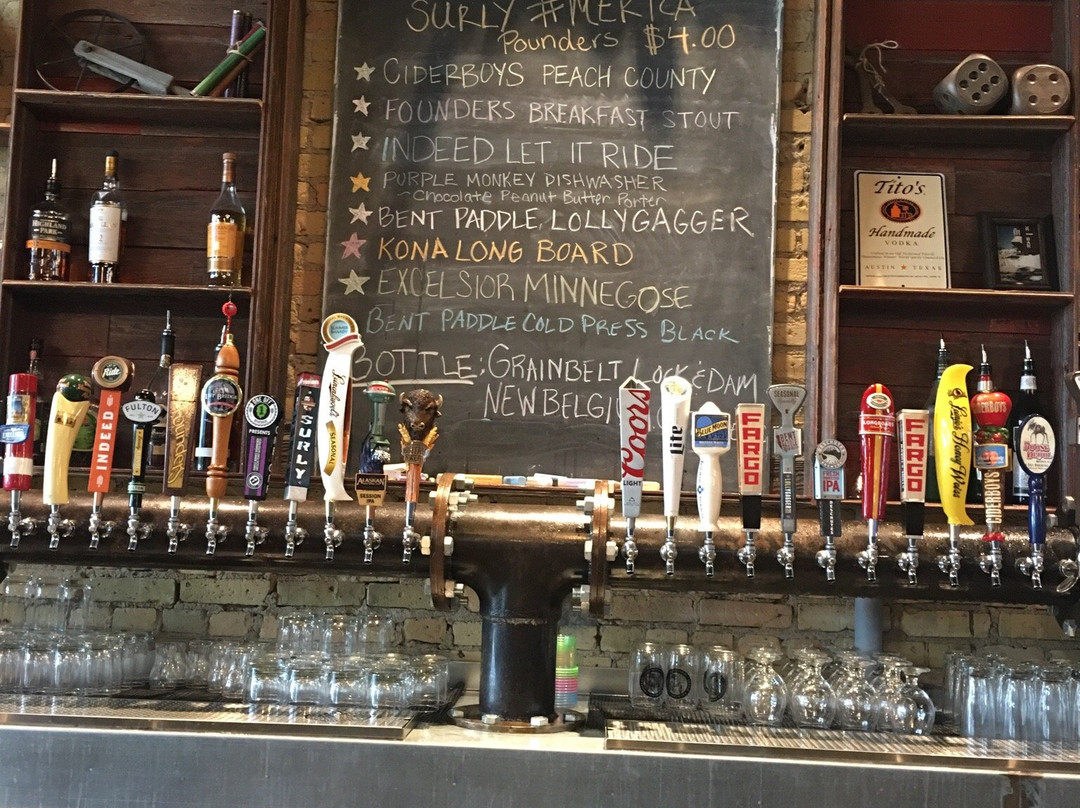 SURLY #MERICA
Pounders $4.00
CIDERBOYS PEACH COUNTY
FOUNDERS BREAKFAST STOUT
INDEED LET IT RIDE
PURPLE MONKEY DISHWASHER
~Chocolate Peanut Butter Porter
BENT PADDLE LOLLYGAGGER
KONA LONG BOARD
EXCELSIOR MINNEGOSE
BENT PADDLE COLD PRESS BLACK
BOTTLE: GRAINBELT LOCK & DAM
NEW BELGI
HIGHLAND
PARK
Tito's
Handmade
VODKA
AUSTIN ★ TEXAS
Ride
INDEED
FULTON
PRESENTS
SURLY
Leinenkugel's
SEASONAL
ALASKAN
SESSION IPA
Coors
LIGHT
Lite
BLUE MOON
FARGO
SEASONAL
BENT
IPA
LONGBOARD
FARGO
Leinie's Honey Weiss
CIDERBOYS
CIDERBOYS